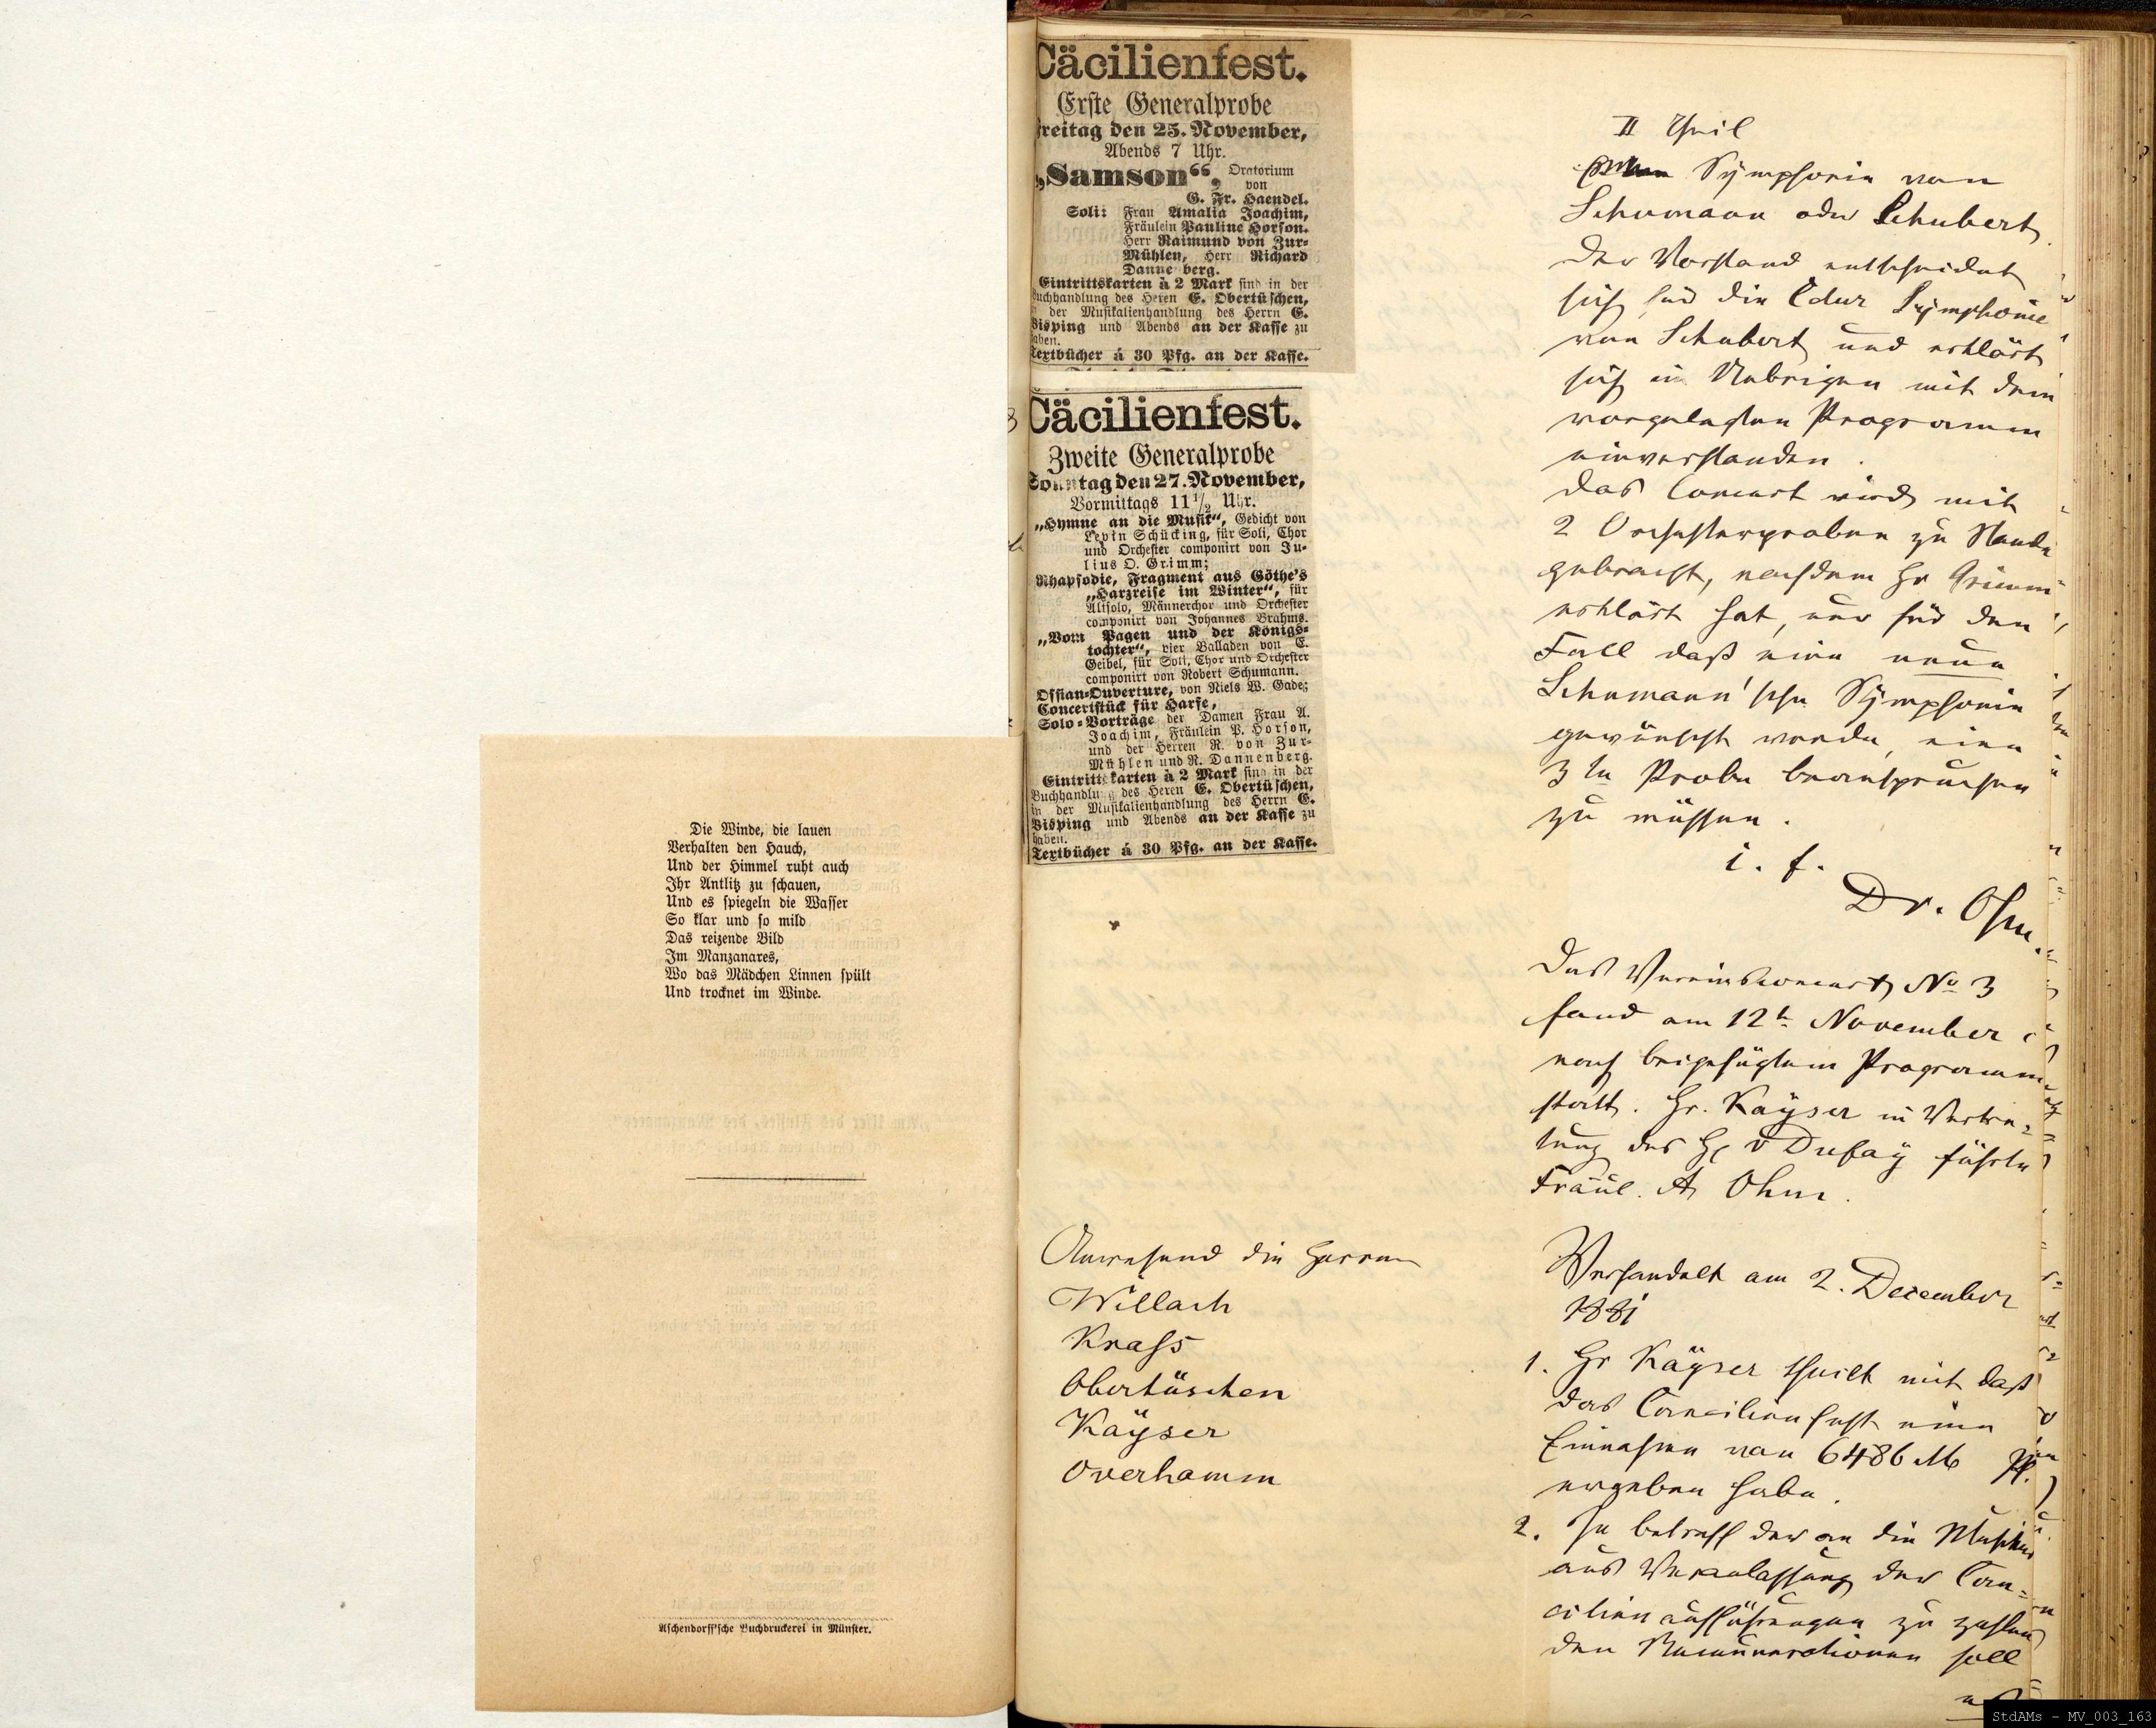 Die Winde, die lauen
Verhalten den Hauch,
Und der Himmel ruht auch
Ihr Antlitz zu schauen,
Und es spiegeln die Wasser
So klar und so mild
Das reizende Bild
Im Manzanares,
Wo das Mädchen Linnen spült
Und trocknet im Winde.
Aschendorff'sche Buchdruckerei in Münster.
Cäcilienfest.
Erste Generalprobe
Freitag den 25. November,
Abends 7 Uhr.
„Samson“, Oratorium
von
G. Fr. Haendel.
Soli: Frau Amalia Joachim,
Fräulein Pauline Horson.
Herr Raimund von Zur-
Mühlen, Herr Richard
Danneberg.
Eintrittskarten à 2 Mark sind in der
Buchhandlung des Herrn E. Obertüschen,
in der Musikalienhandlung des Herrn E.
Bisping und Abends an der Kasse zu
haben.
Textbücher à 30 Pfg. an der Kasse.
Cäcilienfest.
Zweite Generalprobe
Sonntag den 27. November,
Vormittags 11 1/2 Uhr.
„Hymne an die Musik“, Gedicht von
Levin Schücking, für Soli, Chor
und Orchester componirt von Ju-
lius O. Grimm;
Rhapsodie, Fragment aus Göthe's
„Harzreise im Winter“, für
Altsolo, Männerchor und Orchester
componirt von Johannes Brahms.
„Vom Pagen und der Königs-
tochter“, vier Balladen von E.
Geibel, für Soli, Chor und Orchester
componirt von Robert Schumann.
Ossian-Ouverture, von Niels W. Gade;
Concertstück für Harfe,
Solo-Vorträge der Damen Frau A.
Joachim, Fräulein P. Horson,
und der Herren R. von Zur-
Mühlen und R. Dannenberg.
Eintrittskarten à 2 Mark sind in der
Buchhandlung des Herrn E. Obertüschen,
in der Musikalienhandlung des Herrn E.
Bisping und Abends an der Kasse zu
haben.
Textbücher à 30 Pfg. an der Kasse.
Anwesend die Herren
Willach
Krass
Obertüschen
Kayser
Overhamm
II Theil
Symphonie von
Schumann oder Schubert
Der Vorstand entscheidet
sich für die Cdur Symphonie
von Schubert und erklärt
sich im Uebrigen mit dem
vorgelegten Programm
einverstanden.
Das Concert wird mit
2 Orchesterproben zu Stande
gebracht, nachdem Hr Grimm
erklärt hat, nur für den
Fall daß eine neue
Schumann'sche Symphonie
gewünscht werde, eine
3te Probe beanspruchen
zu müssen.
i. f.
Dr. Ohm.
Das Vereinsconcert No 3
fand am 12t. November
nach beigefügtem Programm
statt. Hr. Kayser in Vertre-
tung des Hr v Dufay führte
Fräul. A Ohm.
Verhandelt am 2. December
1881
1. Hr Kayser theilt mit daß
das Caecilienfest eine
Einnahme von 6486 M
ergeben habe.
2. In betreff der an die Musiker
aus Veranlassung der Cae-
cilienaufführungen zu zahlen
den Remunerationen soll
StdAMs - MV_003_163